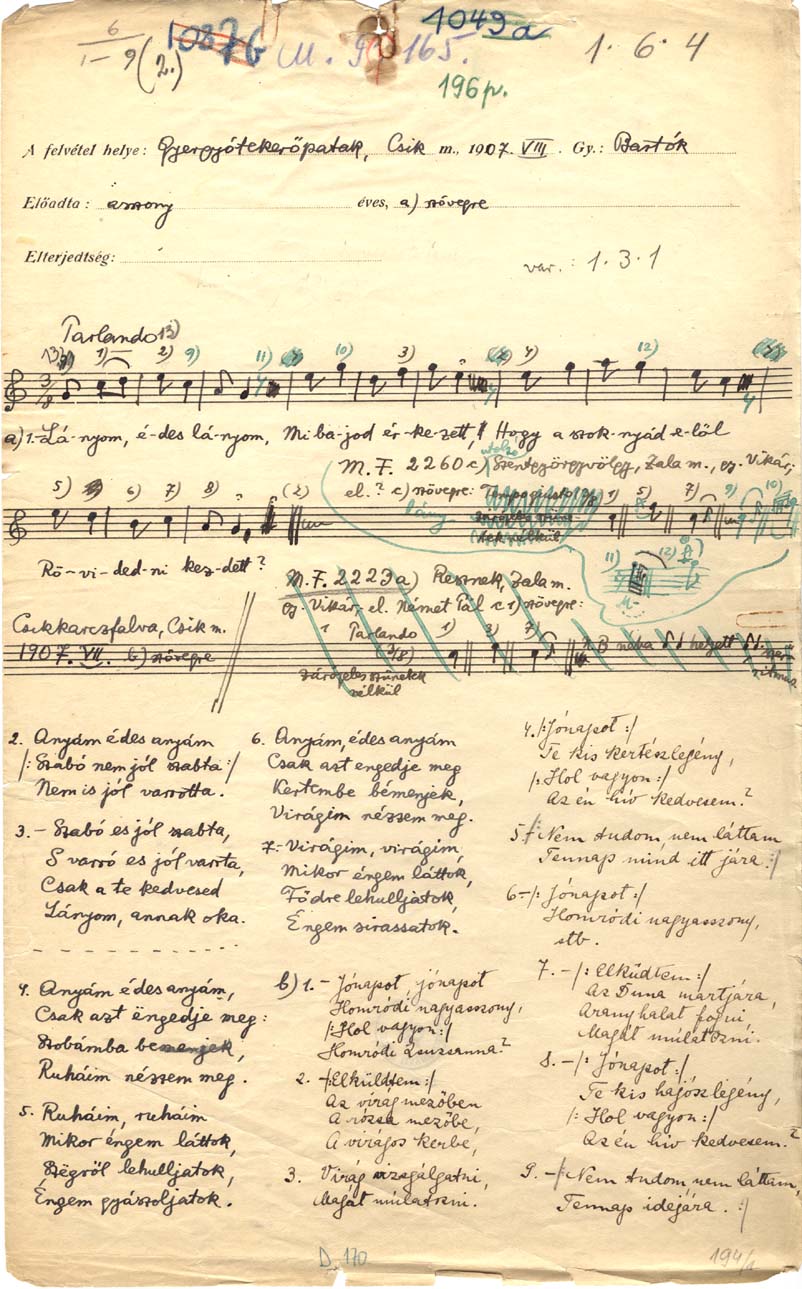 6
1–9 (2.)
1037b
M. F. 165.
1049a
1·6·4
196p.
A felvétel helye: Gyergyótekerőpatak, Csik m., 1907. VIII. Gy.: Bartók
Előadta: asszony éves, a) szövegre
Elterjedtség:
var.: 1·3·1
Parlando 13)
1) 2) 9) 11) 10) 3) 4) 12)
a) 1.–Lá-nyom, é-des lá-nyom, Mi ba-jod ér-ke-zett, Hogy a szok-nyád e-lől
M.F. 2260c) Szentgyörgyvölgy, Zala m., gy. Vikár;
5) 6) 7) 8) (2)
el.? c) szövegre:
1) 5) 7) 9) 10)
11) 12)
Rö-vi-ded-ni kez-dett?
M.F. 2223a) Resznek, Zala m.
gy. Vikár, el. Német Pál c 1) szövegre:
Csikkarczfalva, Csik m.
1907. VII. b) szövegre
Parlando
1) 3) 7)
zárójeles szünetek
nélkül
2. Anyám édes anyám
/: Szabó nem jól szabta :/
Nem is jól varrotta.
3. – Szabó es jól szabta,
S varró es jól varrta,
Csak a te kedvesed
Lányom, annak oka.
4. Anyám édes anyám,
Csak azt engedje meg:
Szobámba bemenjek,
Ruháim nézzem meg.
5. Ruháim, ruháim
Mikor éngem láttok,
Szëgről lehulljatok,
Éngem gyászoljatok.
6. Anyám, édes anyám
Csak azt engedje meg
Kertembe bémenjek,
Virágim nézzem meg.
7.– Virágim, virágim,
Mikor éngem láttok,
Födre lehulljatok,
Éngem sirassatok.
b) 1. – Jónapot, jónapot
Homródi nagyasszony,
/: Hol vagyon :/
Homródi Zsuzsanna?
2. –/: Elküldtem :/
Az virág mezőben
A rózsa mezőbe,
A virágos kerbe,
3. Virág vizsgálgatni,
Magát múlatozni.
4. /: Jónapot :/
Te kis kertészlegény,
/: Hol vagyon :/
Az én hív kedvesem?
5. /: Nem tudom, nem láttam
Tennap mind itt jára :/
6.–/: Jónapot :/
Homródi nagyasszony,
stb.
7. –/: Elküdtem :/
Az Duna martjára,
Arany halat fogni
Magát múlatozni.
8. –/: Jónapot :/
Te kis hajóslegény,
/: Hol vagyon :/
Az én hív kedvesem?
9. –/: Nem tudom nem láttam,
Tennap idejára. :/
D. 170
194/1